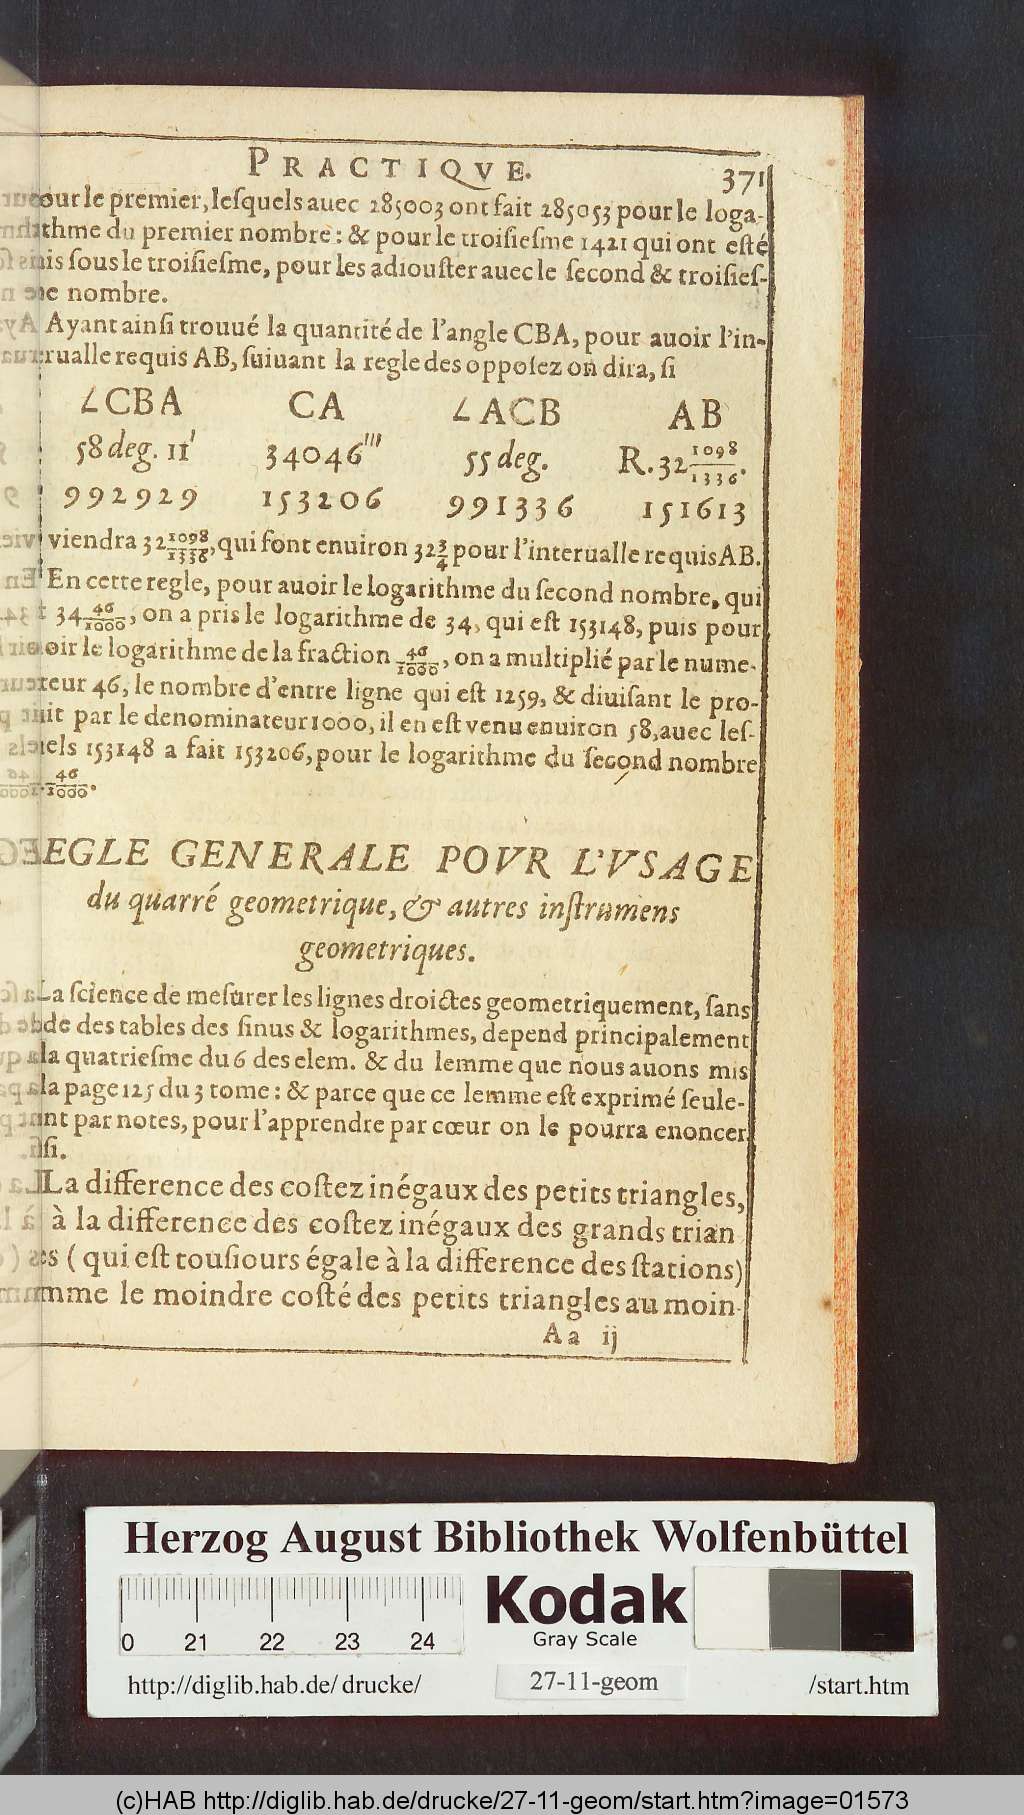 PRACTIQVE. 371
our le premier, leſquels auec 285003 ont fait 285053 pour le loga-
thme du premier nombre: & pour le troiſieſme 1421 qui ont eſté
is ſous le troiſieſme, pour les adiouſter auec le ſecond & troiſieſ-
e nombre.
Ayant ainſi trouué la quantité de l'angle CBA, pour auoir l'in-
rualle requis AB, ſuiuant la regle des oppoſez on dira, ſi
∠CBA CA ∠ACB AB
58 deg. 11' 34046''' 55 deg. R. 32 1098/1336.
992929 153206 991336 151613
viendra 32 1098/1336, qui font enuiron 32 3/4 pour l'interualle requis AB.
En cette regle, pour auoir le logarithme du ſecond nombre, qui
t 34 46/1000, on a pris le logarithme de 34, qui eſt 153148, puis pour
oir le logarithme de la fraction 46/1000, on a multiplié par le nume-
teur 46, le nombre d'entre ligne qui eſt 1259, & diuiſant le pro-
uit par le denominateur 1000, il en eſt venu enuiron 58, auec leſ-
els 153148 a fait 153206, pour le logarithme du ſecond nombre
46/1000.
EGLE GENERALE POVR L'VSAGE
du quarré geometrique, & autres inſtrumens
geometriques.
La ſcience de meſurer les lignes droictes geometriquement, ſans
de des tables des ſinus & logarithmes, depend principalement
la quatrieſme du 6 des elem. & du lemme que nous auons mis
la page 125 du 3 tome: & parce que ce lemme eſt exprimé ſeule-
nt par notes, pour l'apprendre par cœur on le pourra enoncer
ſi.
La difference des coſtez inégaux des petits triangles,
à la difference des coſtez inégaux des grands trian
s (qui eſt touſiours égale à la difference des ſtations)
mme le moindre coſté des petits triangles au moin-
Aa ij
Herzog August Bibliothek Wolfenbüttel
0 21 22 23 24
Kodak
Gray Scale
http://diglib.hab.de/ drucke/ 27-11-geom /start.htm
(c)HAB http://diglib.hab.de/drucke/27-11-geom/start.htm?image=01573